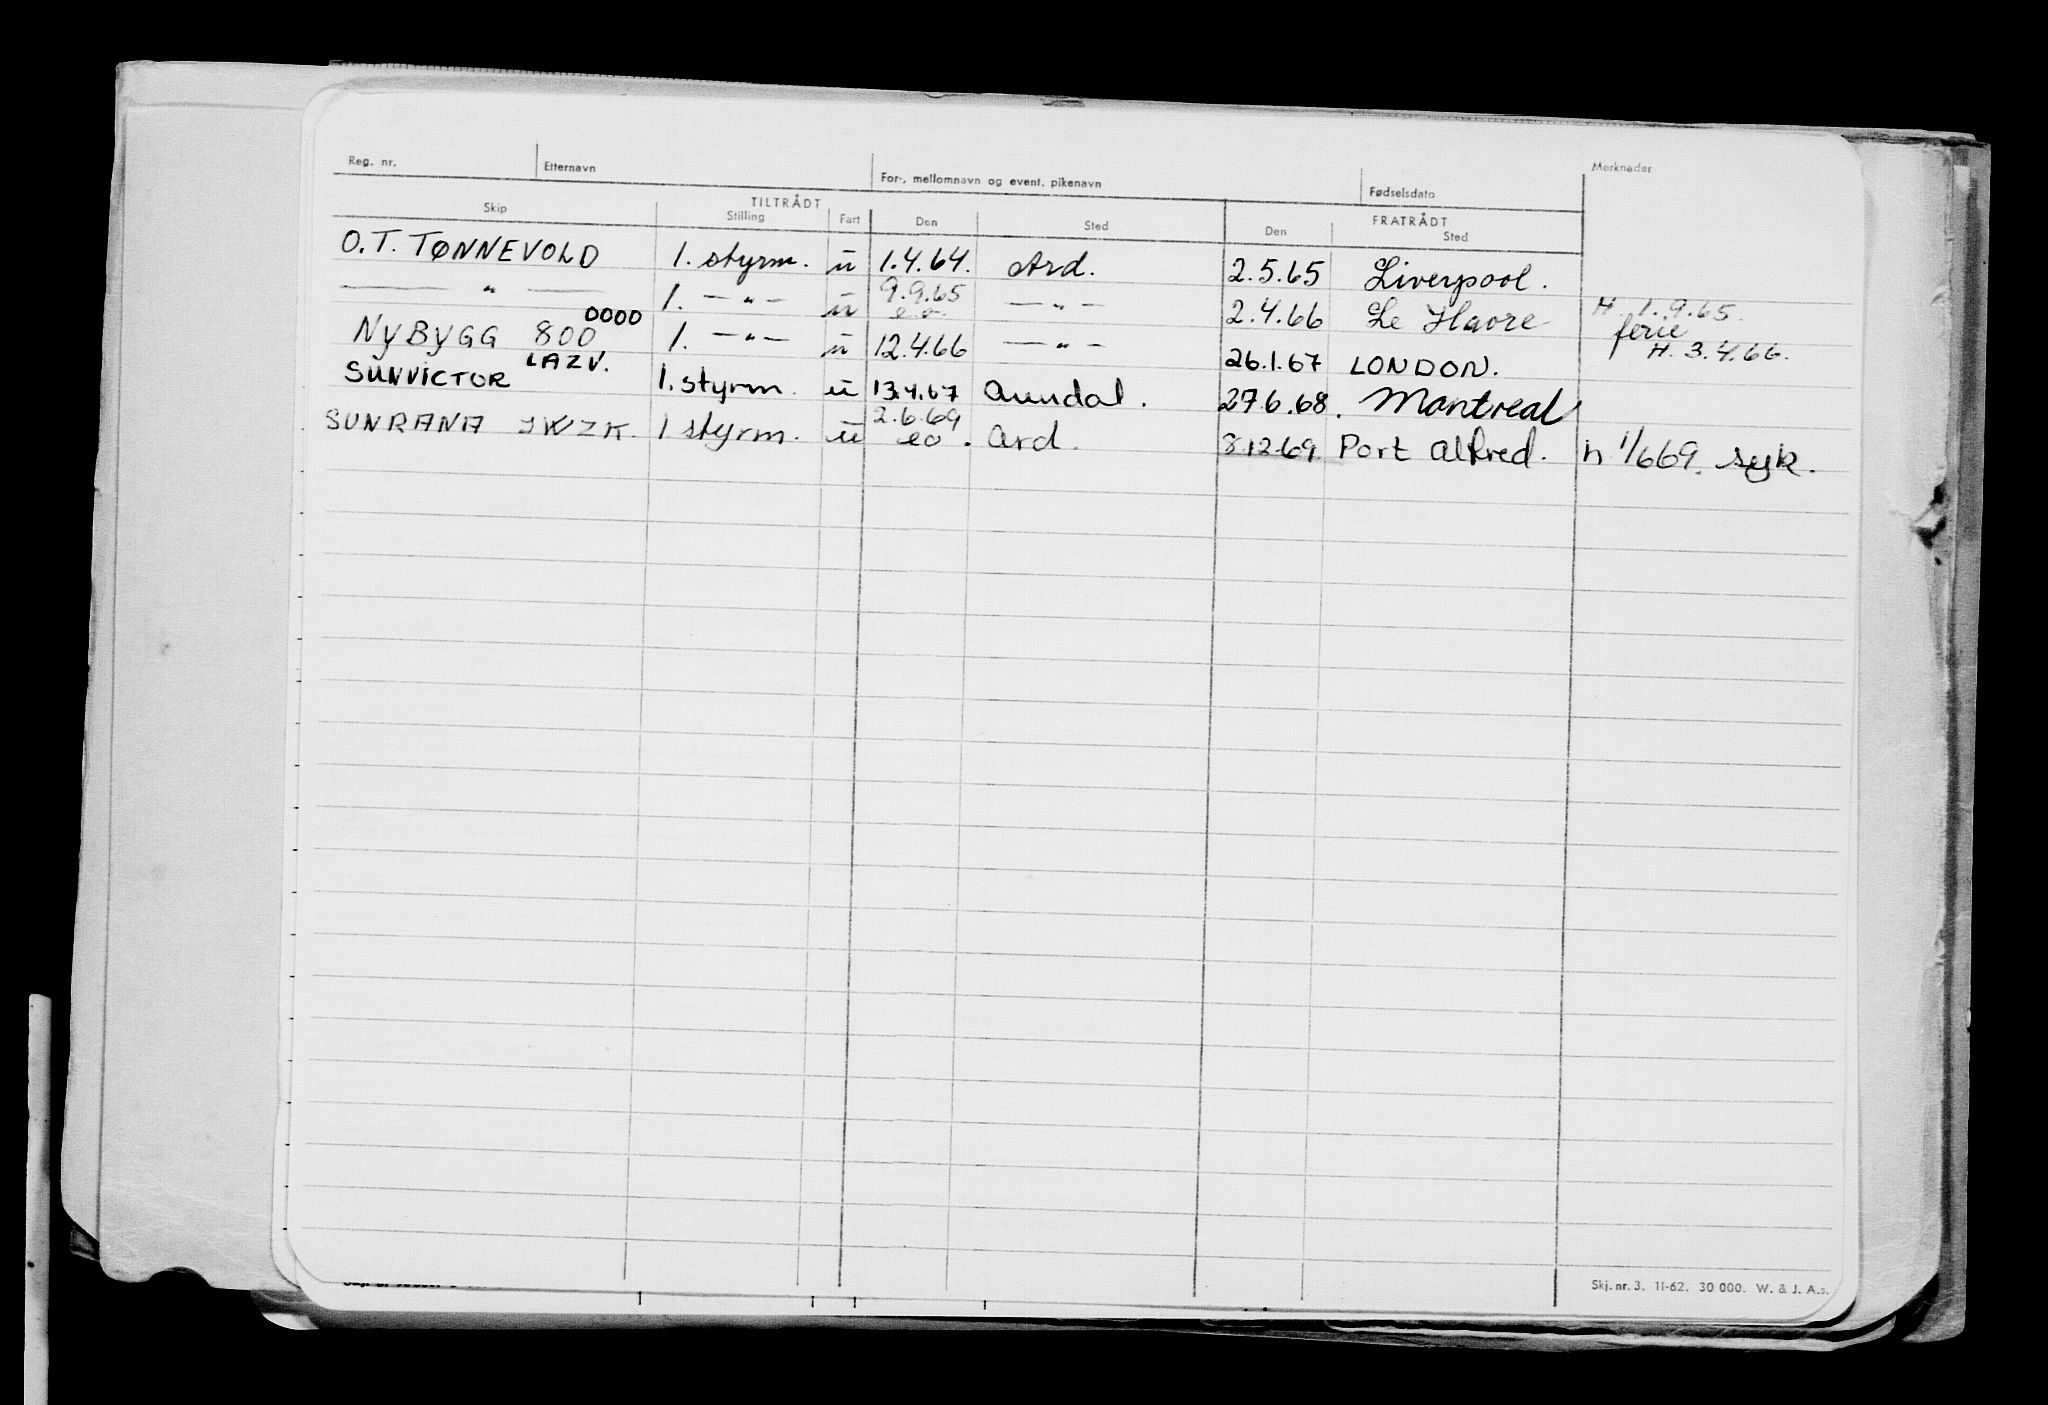 Reg. nr. Etternavn For-, mellomnavn og event. pikenavn Fødselsdato Merknader
TILTRÅDT FRATRÅDT
Skip Stilling Fart Den Sted Den Sted
O.T. TØNNEVOLD 1. styrm. ū 1.4.64. Ard. 2.5.65 Liverpool.
— " — 1. — " — ū 9.9.65 e.o. — " — 2.4.66 Le Havre H. 1.9.65. ferie
NYBYGG 800 0000 1. — " — ū 12.4.66 — " — 26.1.67 LONDON. H. 3.4.66.
SUNVICTOR LAZV. 1. styrm. ū 13.4.67 Arendal. 27.6.68. Montreal
SUNRANA JWZK. 1 styrm. ū 2.6.69 eo. Ard. 8.12.69. Port Alfred. h 1/669. syk.
Skj. nr. 3. 11-62. 30 000. W. & J. A.s.